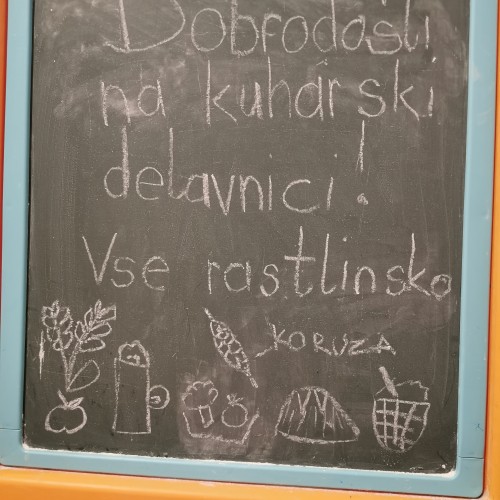 Dobrodošli
na kuharski
delavnici!
Vse rastlinsko
KORUZA